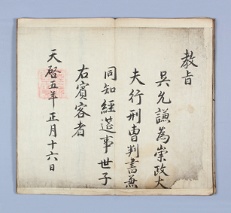 教旨
吳允謙為崇政大
夫行刑曹判書兼
同知經筵事世子
右賓客者
天啓五年正月十六日